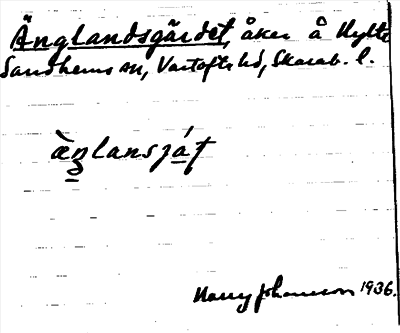 Änglandsgärdet, åker å Hylte
Sandhems sn, Vartofta hd, Skarab. l.
ænlansjáṭ
Harry Johansson 1936.